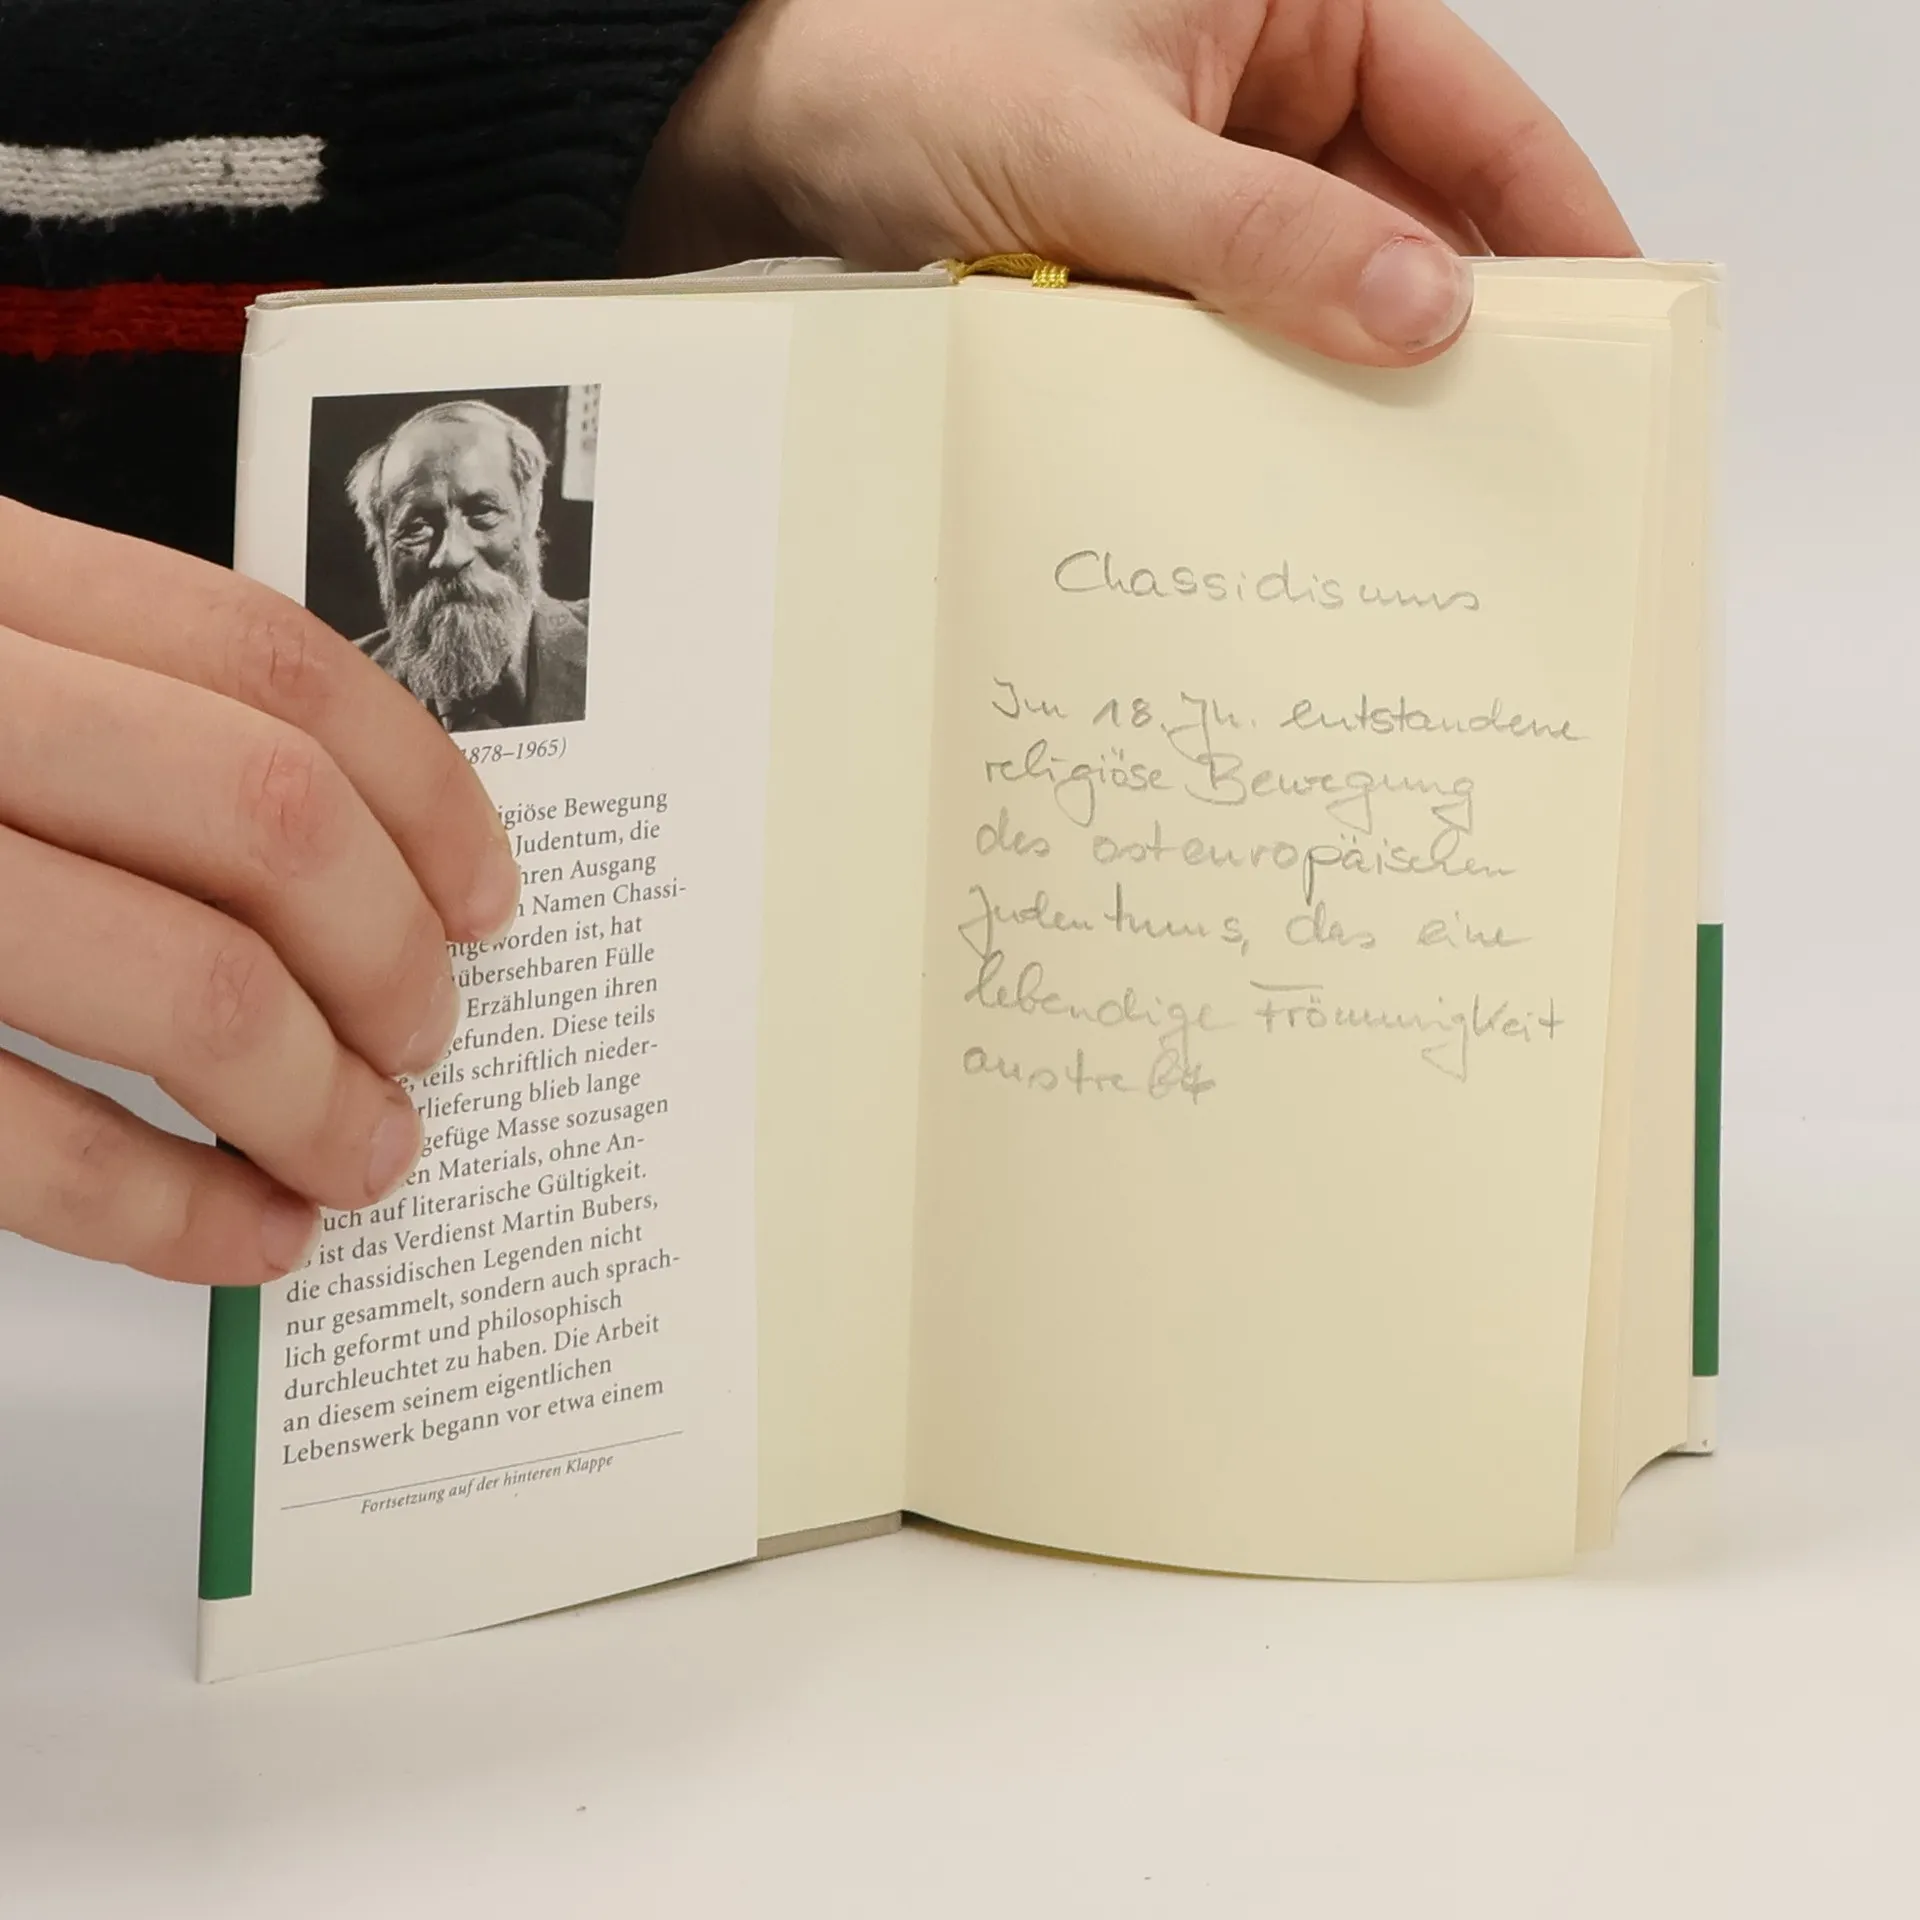 1878–1965)
igiöse Bewegung
Judentum, die
hren Ausgang
n Namen Chassi-
ntgeworden ist, hat
übersehbaren Fülle
Erzählungen ihren
efunden. Diese teils
e, teils schriftlich nieder-
rlieferung blieb lange
gefüge Masse sozusagen
en Materials, ohne An-
uch auf literarische Gültigkeit.
ist das Verdienst Martin Bubers,
die chassidischen Legenden nicht
nur gesammelt, sondern auch sprach-
lich geformt und philosophisch
durchleuchtet zu haben. Die Arbeit
an diesem seinem eigentlichen
Lebenswerk begann vor etwa einem
Fortsetzung auf der hinteren Klappe
Chassidismus
Im 18. Jh. entstandene
religiöse Bewegung
des osteuropäischen
Judentums, das eine
lebendige Frömmigkeit
anstrebt